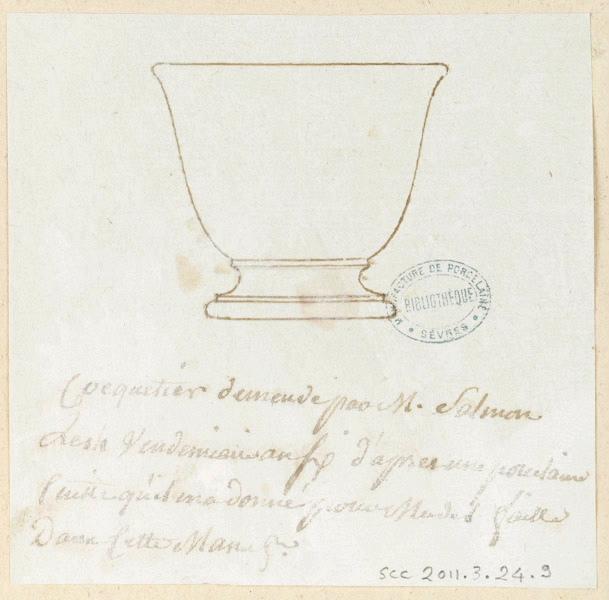 MANUFACTURE DE PORCELAINE
BIBLIOTHÈQUE
SÈVRES
Coequetier demende par M. Salmon
Vendemiaire an d'apres une porcelaine
cuitte qu'il m'a donné pour
Dans cette Manuf.re
SCC 2011.3.24.9